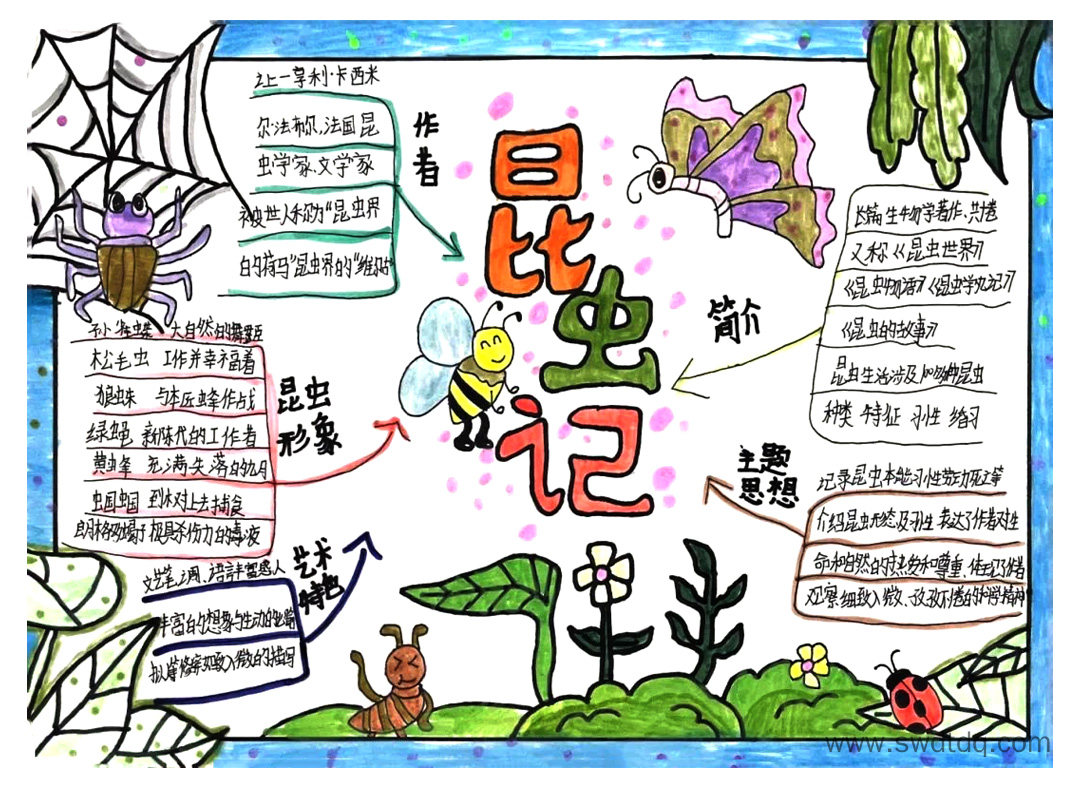 昆虫记
作者
让一亨利·卡西米
尔·法布尔、法国昆
虫学家、文学家
被世人称为"昆虫界
的荷马"昆虫界的"维吉尔"
昆虫形象
大自然的舞蹈
松毛虫 工作并幸福着
狼蛛 与木匠蜂作战
绿蝇 新陈代谢的工作者
黄蜂 充满失落的九月
虫国虫国 到林对上去捕食
朗格多蝎 极具杀伤力的毒液
艺术特色
语言丰富感人
丰富的想象与生动的
细致入微的描写
简介
长篇生物学著作、共十卷
又称《昆虫世界》
《昆虫物语》《昆虫学札记》
《昆虫的故事》
昆虫生活涉及100多种昆虫
种类 特征 习性 婚习
主题思想
记录昆虫本能习性劳动死亡等
介绍昆虫形态及习性 表达了作者对生
命和自然的热爱和尊重、体现了作者
观察细致入微、孜孜不倦的科学精神
www.swdtdq.com